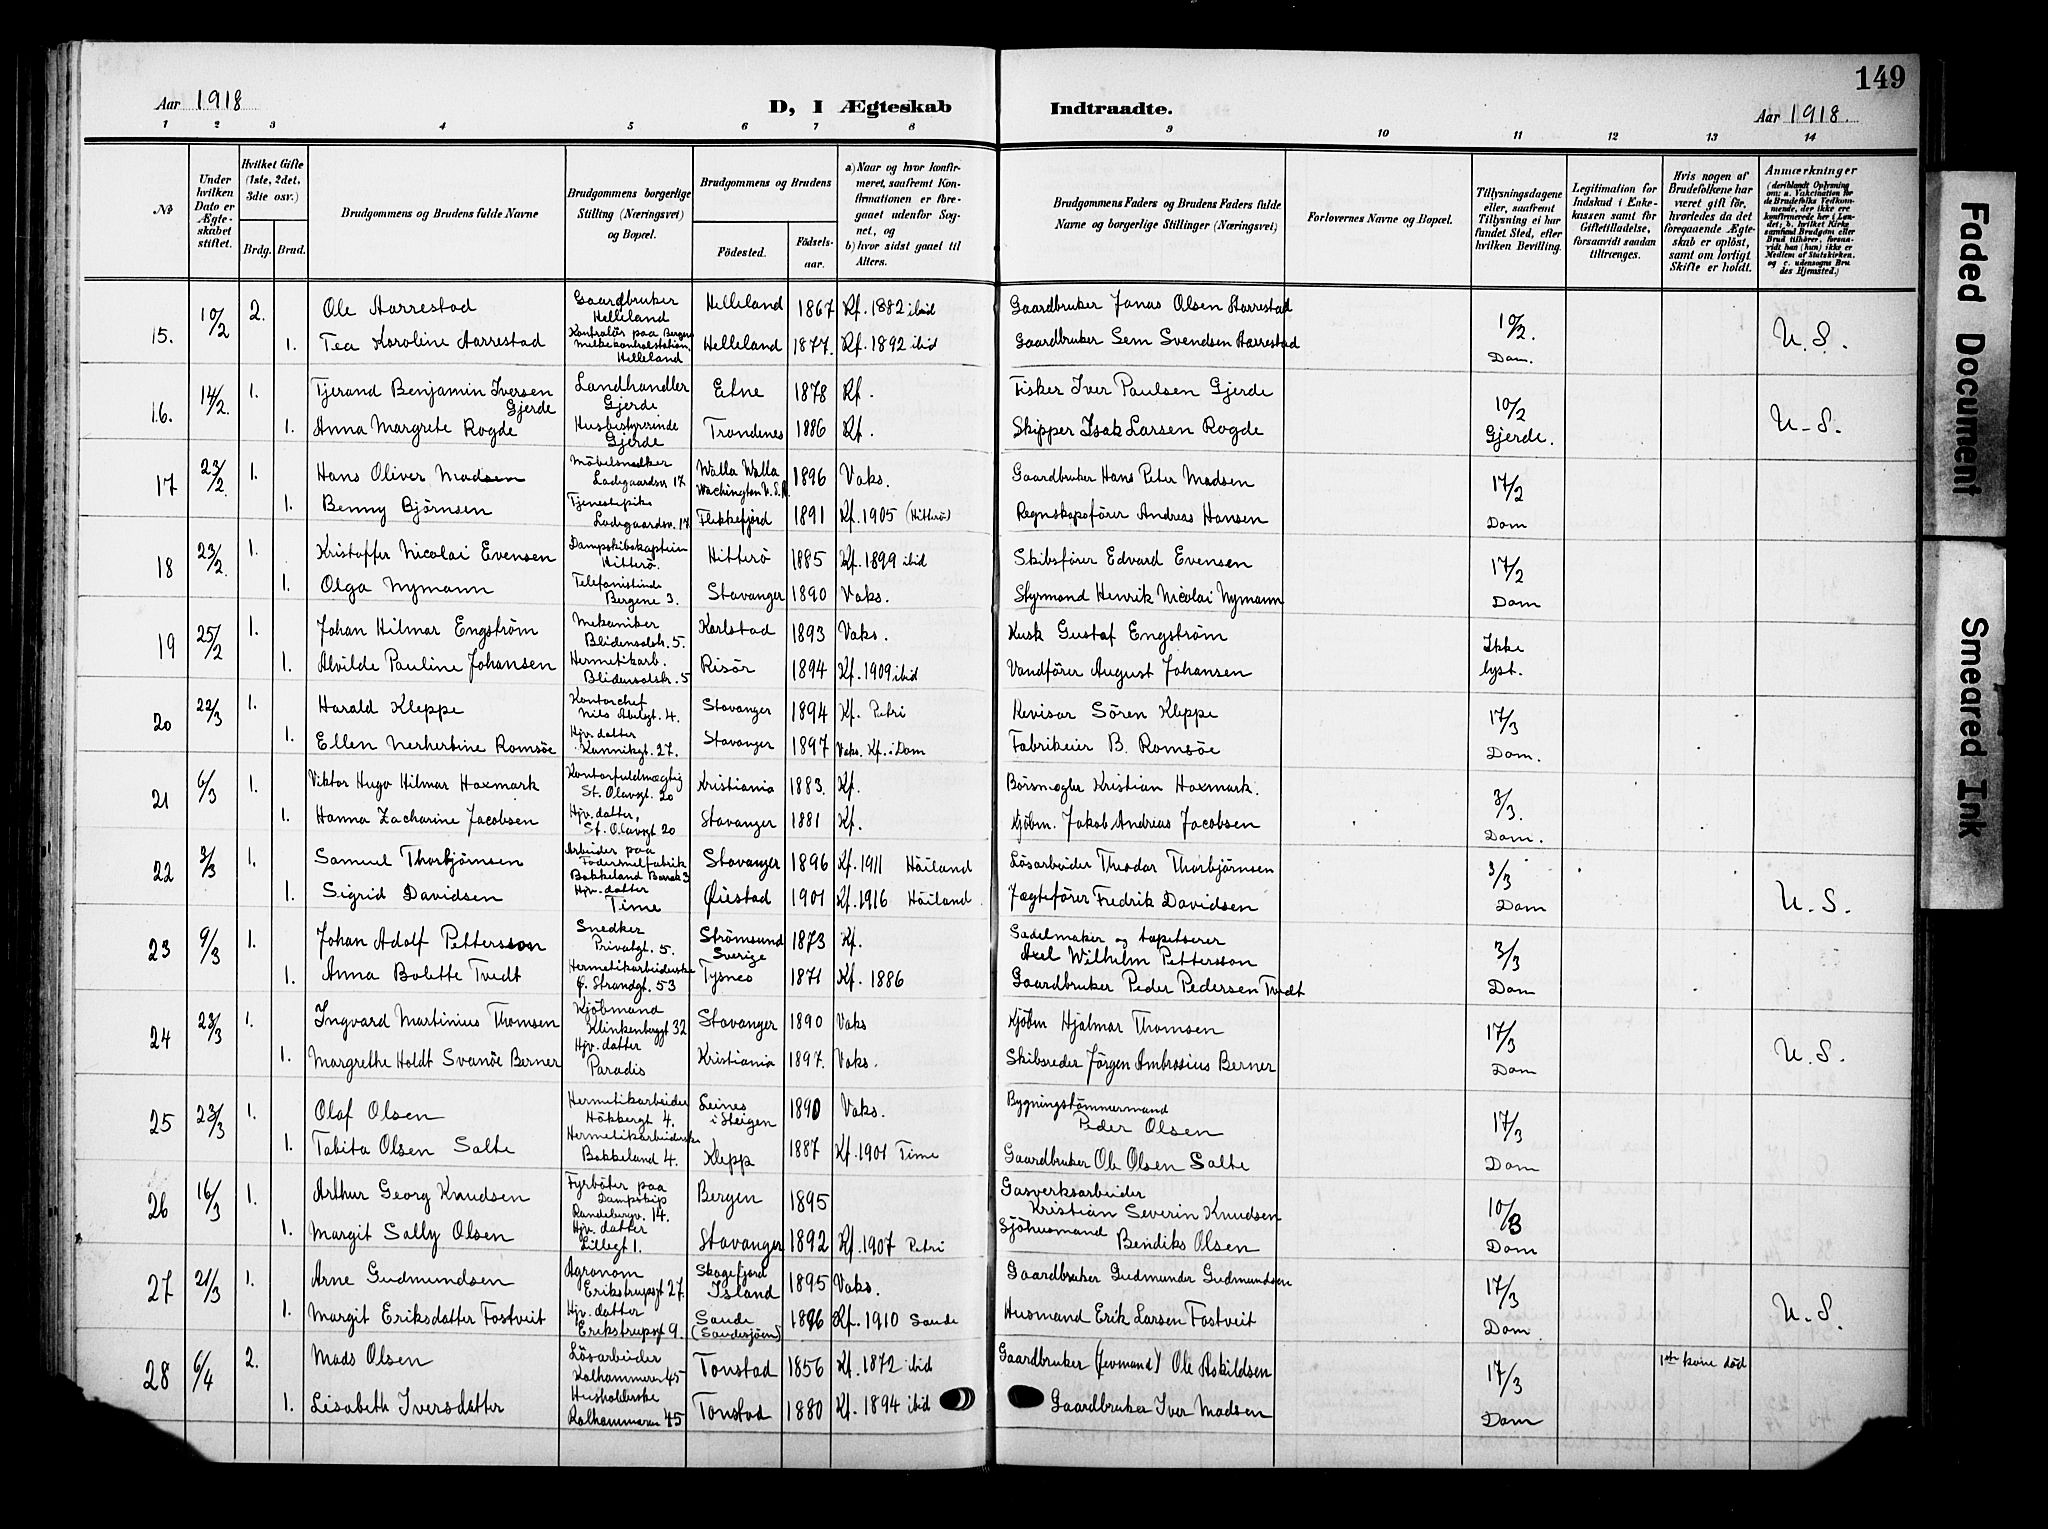 149
Aar 1918
D, I Ægteskab Indtraadte.
Aar 1918.
1 2 3 4 5 6 7 8 9 10 11 12 13 14
No
Under hvilken Dato er Ægteskabet stiftet.
Hvilket Gifte (1ste, 2det, 3die osv.)
Brdg. Brud.
Brudgommens og Brudens fulde Navne
Brudgommens borgerlige Stilling (Næringsvei) og Bopæl.
Brudgommens og Brudens
Fødested.
Fødselsaar.
a) Naar og hvor konfirmeret, saafremt Konfirmationen er foregaaet udenfor Sognet, og
b) hvor sidst gaaet til Alters.
Brudgommens Faders og Brudens Faders fulde Navne og borgerlige Stillinger (Næringsvei)
Forlovernes Navne og Bopæl.
Tillysningsdagene eller, saafremt Tillysning ei har fundet Sted, efter hvilken Bevilling.
Legitimation for Indskud i Enkekassen samt for Giftetilladelse, forsaavidt saadan tiltrænges.
Hvis nogen af Brudefolkene har været gift før, hvorledes da det foregaaende Ægteskab er opløst, samt om lovligt Skifte er holdt.
Anmærkninger
(deriblandt Oplysning om: a. Vakcination for de Brudefolks Vedkommende, der ikke ere konfirmerede her i Landet; b. hvilket Kirkesamfund Brudgom eller Brud tilhører, forsaavidt han (hun) ikke er Medlem af Statskirken, og c. udensogns Brudes Hjemsted.)
15. 10/2 2. Ole Aarrestad Gaardbruker Helleland Helleland 1867 Kf. 1882 ibid Gaardbruker Jonas Olsen Aarrestad 10/2. Dom. U. S.
1. Tea Karoline Aarrestad Kontrolør paa Bergens melkekontrolstation. Helleland Helleland 1877. Kf. 1892 ibid Gaardbruker Sem Svendsen Aarrestad
16. 14/2. 1. Tjerand Benjamin Iversen Gjerde Landhandler Gjerde Etne 1878 Kf. Fisker Iver Paulsen Gjerde 10/2 Gjerde. U. S.
1. Anna Margrete Rogde Husbestyrerinde Gjerde Trondenes 1886 Kf. Skipper Isak Larsen Rogde
17 23/2. 1. Hans Oliver Madsen Möbelsnedker Ladegaardsv 17 Walla Walla Wachington U.S.A. 1896 Vaks. Gaardbruker Hans Peter Madsen 17/2 Dom
1. Benny Björnsen Tjenestepike Ladegaardsv. 17 Flekkefjord 1891 Kf. 1905 (Hitterö) Regnskapsfører Andreas Hansen
18 23/2. 1. Kristoffer Nicolai Evensen Dampskibskaptein Hitterö. Hitterö 1885 Kf. 1899 ibid Skibsfører Edvard Evensen 17/2 Dom
1. Olga Nymann Telefonistinde Bergene 3. Stavanger 1890 Vaks. Styrmand Henrik Nicolai Nymann
19 25/2 1. Johan Hilmar Engström Mekaniker Blidensolstr. 5. Karlstad 1893 Vaks. Kusk Gustaf Engström Ikke lyst.
1. Alvilde Pauline Johansen Hermetikarb. Blidensolstr. 5 Risör 1894 Kf. 1909 ibid Vandfører August Johansen
20 22/3 1. Harald Kleppe Kontorchef Nils Abelsgt. 4. Stavanger 1894 Kf. Petri Revisor Sören Kleppe 17/3 Dom.
1. Ellen Romsöe Hjv. datter Kannikgt. 27. Stavanger 1897 Vaks. Kf. i Dom Fabrikeier B. Romsöe
21 6/3 1. Viktor Hugo Hilmar Haxmark Kontorfuldmægtig St. Olavsgt. 20 Kristiania 1883. Kf. Börsmægler Kristian Haxmark. 3/3. Dom.
1. Hanna Zacharine Jacobsen Hjv. datter, St. Olavsgt 20 Stavanger 1881 Kf. Kjöbm. Jakob Andreas Jacobsen
22 3/3 1. Samuel Thorbjörnsen Arbeider paa Fodermelfabrik Bakkeland Barak 3 Stavanger 1896 Kf. 1911 Håiland Lösarbeider Theodor Thorbjörnsen 3/3 Dom U. S.
1. Sigrid Davidsen Hjv. datter Time Øiestad 1901 Kf. 1916 Håiland Jægtefører Fredrik Davidsen
23 9/3 1. Johan Adolf Pettersson Snedker Privatgt. 5. Strömsund Sverige 1873 Kf. Sadelmaker og tapetserer Axel Wilhelm Pettersson 3/3 Dom
1. Anna Bolette Tvedt Hermetikarbeiderske Ø. Strandgt. 53 Tysnes 1871 Kf. 1886 Gaardbruker Peder Pedersen Tvedt
24 23/3 1. Ingvard Martinius Thomsen Kjöbmand Klinkenbergt 32 Stavanger 1890 Vaks Kjöbm Hjalmar Thomsen 17/3 Dom U. S.
1. Margrethe Holdt Svanöe Berner Hjv. datter Paradis Kristiania 1897. Vaks. Skibsreder Jörgen Ambrosius Berner
25 23/3 1. Olaf Olsen Hermetikarbeider Hökbergt 4. Leines i Steigen 1890 Vaks. Bygningstömmermand Peder Olsen 17/3 Dom
1. Tabita Olsen Salte Hermetikarbeiderske Bakkeland 4. Klepp 1887 Kf. 1901 Time Gaardbruker Ole Olsen Salte
26 16/3 1. Arthur Georg Knudsen Fyrböter paa Dampskip Randebergv. 14. Bergen 1895 Gasverksarbeider Kristian Severin Knudsen 10/3 Dom
1. Margit Sally Olsen Hjv. datter Lillegt 1. Stavanger 1892 Kf. 1907 Petri Sjöhusmand Bendiks Olsen
27 21/3 1. Arne Gudmundsen Agronom Erikstrupsgt 27. Skagefjord Island 1895 Vaks. Gaardbruker Gudmunder Gudmundsen 17/3 Dom. U. S.
1. Margit Eriksdatter Fostveit Hjv. datter Erikstrupsgt 9. Saude (Saudesjøen) 1896 Kf. 1910 Saude Husmand Erik Larsen Fostveit
28 6/4 2. Mads Olsen Lösarbeider Kalhammeren 45 Tonstad 1856 Kf. 1872 ibid Gaardbruker (Levmand) Ole Askildsen 17/3 Dom 1ste kone død
1. Lisabeth Iversdatter Husholderske Kalhammeren 45 Tonstad 1880 Kf. 1894 ibid Gaardbruker Iver Madsen
Faded Document
Smeared Ink